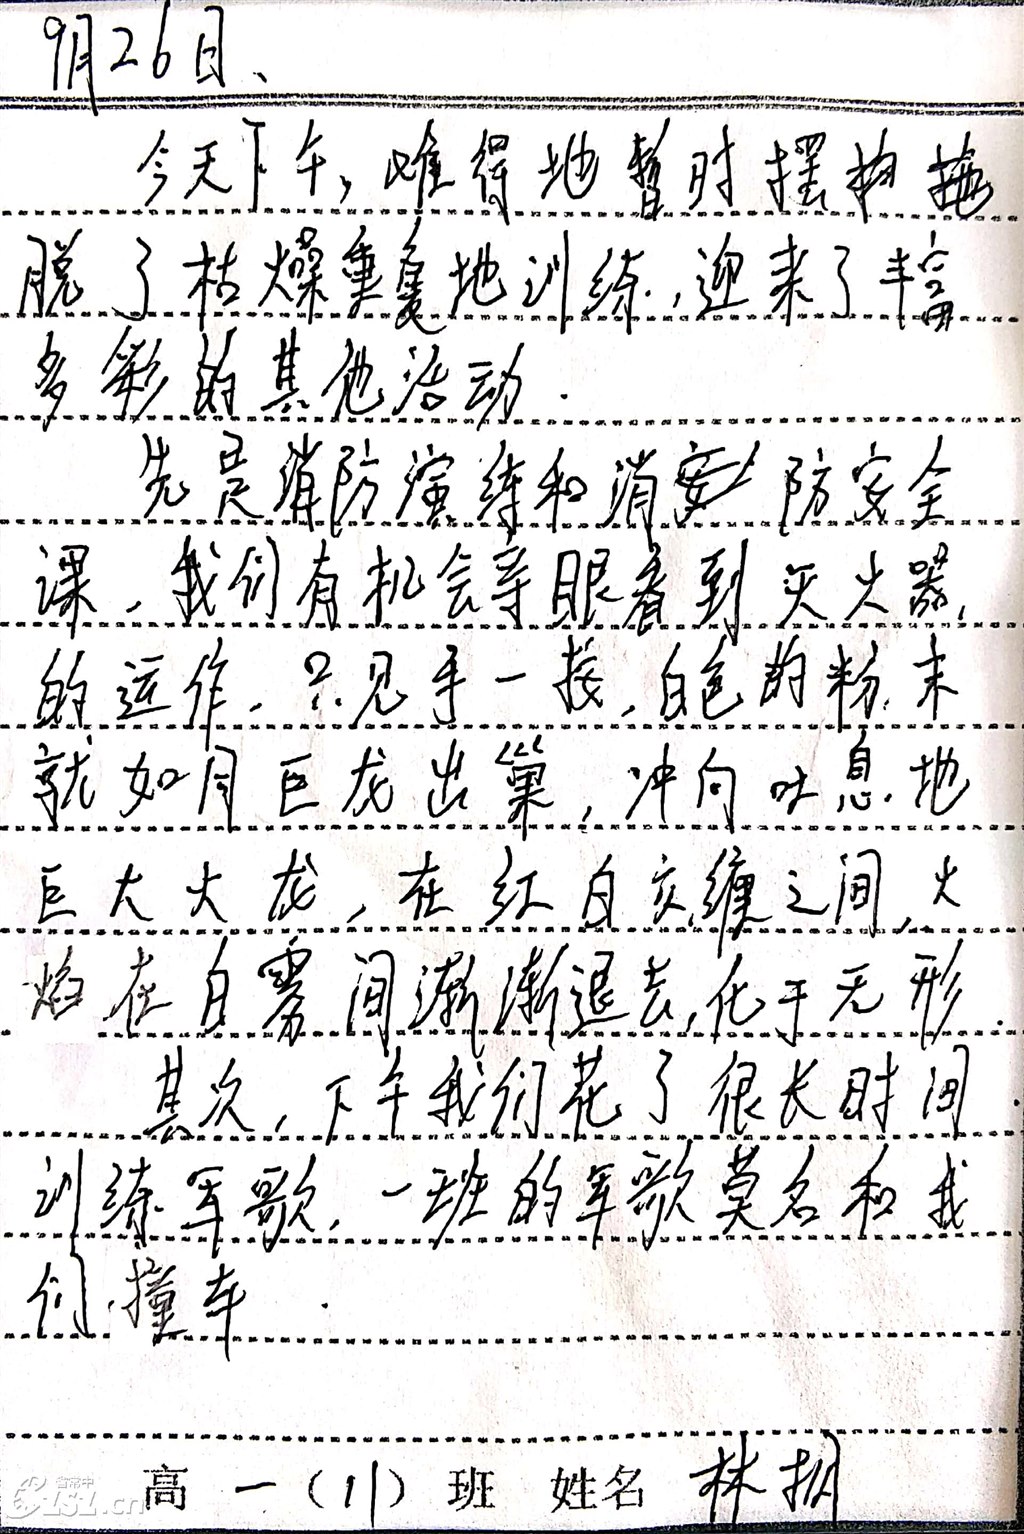 9月26日、
今天下午，难得地暂时摆拖
脱了枯燥重复地训练，迎来了丰富
多彩的其他活动.
先是消防演练和消防安全
课，我们有机会亲眼看到灭火器
的运作，只见手一按，白色的粉末
就如同巨龙出巢，冲向吐息地
巨大火龙，在红白交缠之间，火
焰在白雾间渐渐退去，化于无形.
其次，下午我们花了很长时间
训练军歌，一班的军歌莫名和我
们撞车.
高一（11）班 姓名 林